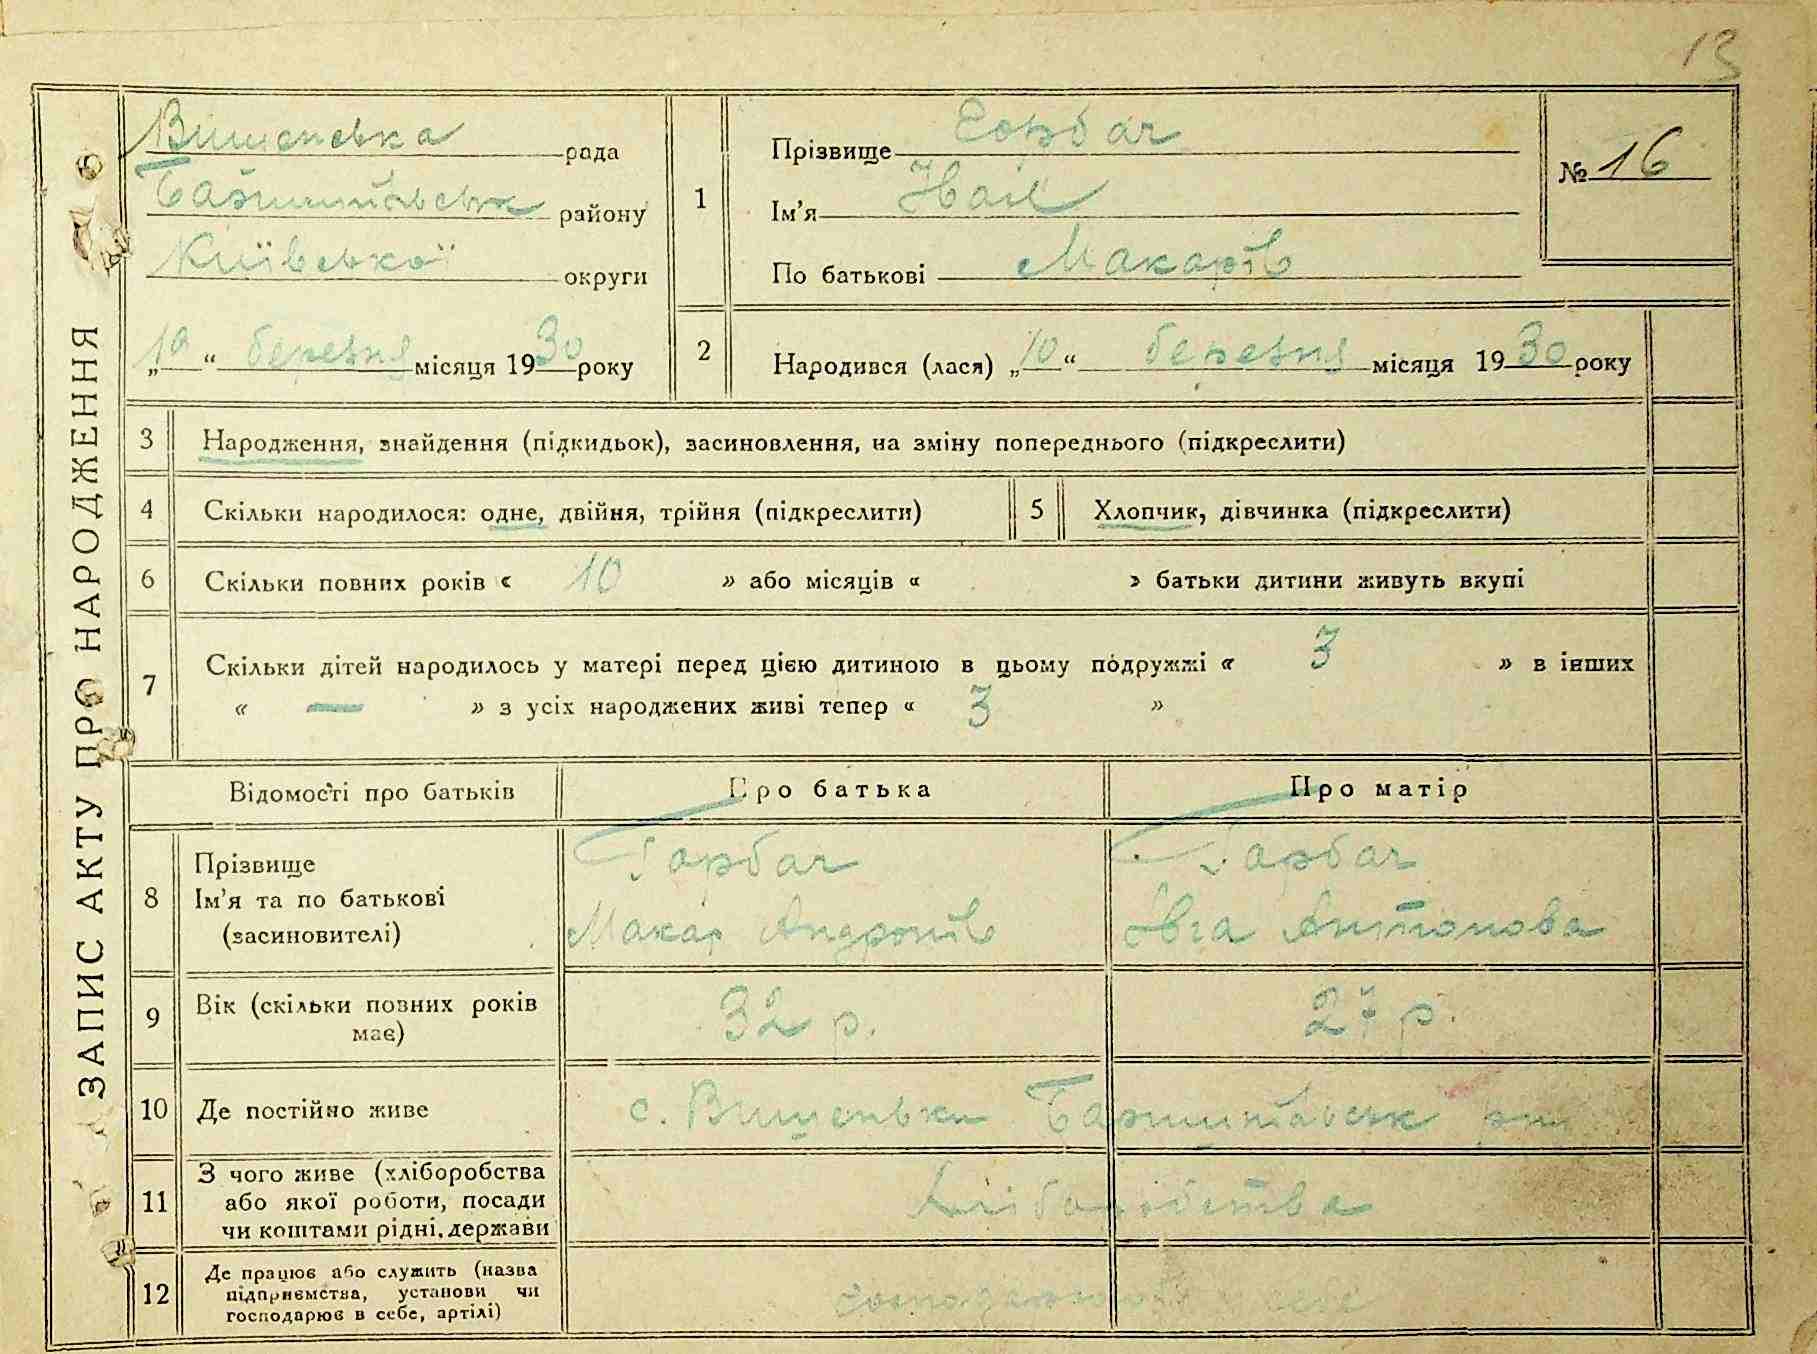 13
ЗАПИС АКТУ ПРО НАРОДЖЕННЯ
Вишенська рада
району
Київської округи
„10“ березня місяця 1930 року
1
Прізвище Горбач
Ім’я
По батькові Макарів
№ 16
2
Народився (лася) „10“ березня місяця 1930 року
3 Народження, знайдення (підкидьок), засиновлення, на зміну попереднього (підкреслити)
4 Скільки народилося: одне, двійня, трійня (підкреслити)
5 Хлопчик, дівчинка (підкреслити)
6 Скільки повних років « 10 » або місяців « » батьки дитини живуть вкупі
7 Скільки дітей народилось у матері перед цією дитиною в цьому подружжі « 3 » в інших
« — » з усіх народжених живі тепер « 3 »
Відомості про батьків Про батька Про матір
8 Прізвище
Ім’я та по батькові
(засиновителі)
Горбач
Макар Андронів
Горбач
Івга Антонова
9 Вік (скільки повних років
має)
32 р. 27 р.
10 Де постійно живе с. Вишеньки
11 З чого живе (хліборобства
або якої роботи, посади
чи коштами рідні, держави
Хліборобства
12 Де працює або служить (назва
підприємства, установи чи
господарює в себе, артілі)